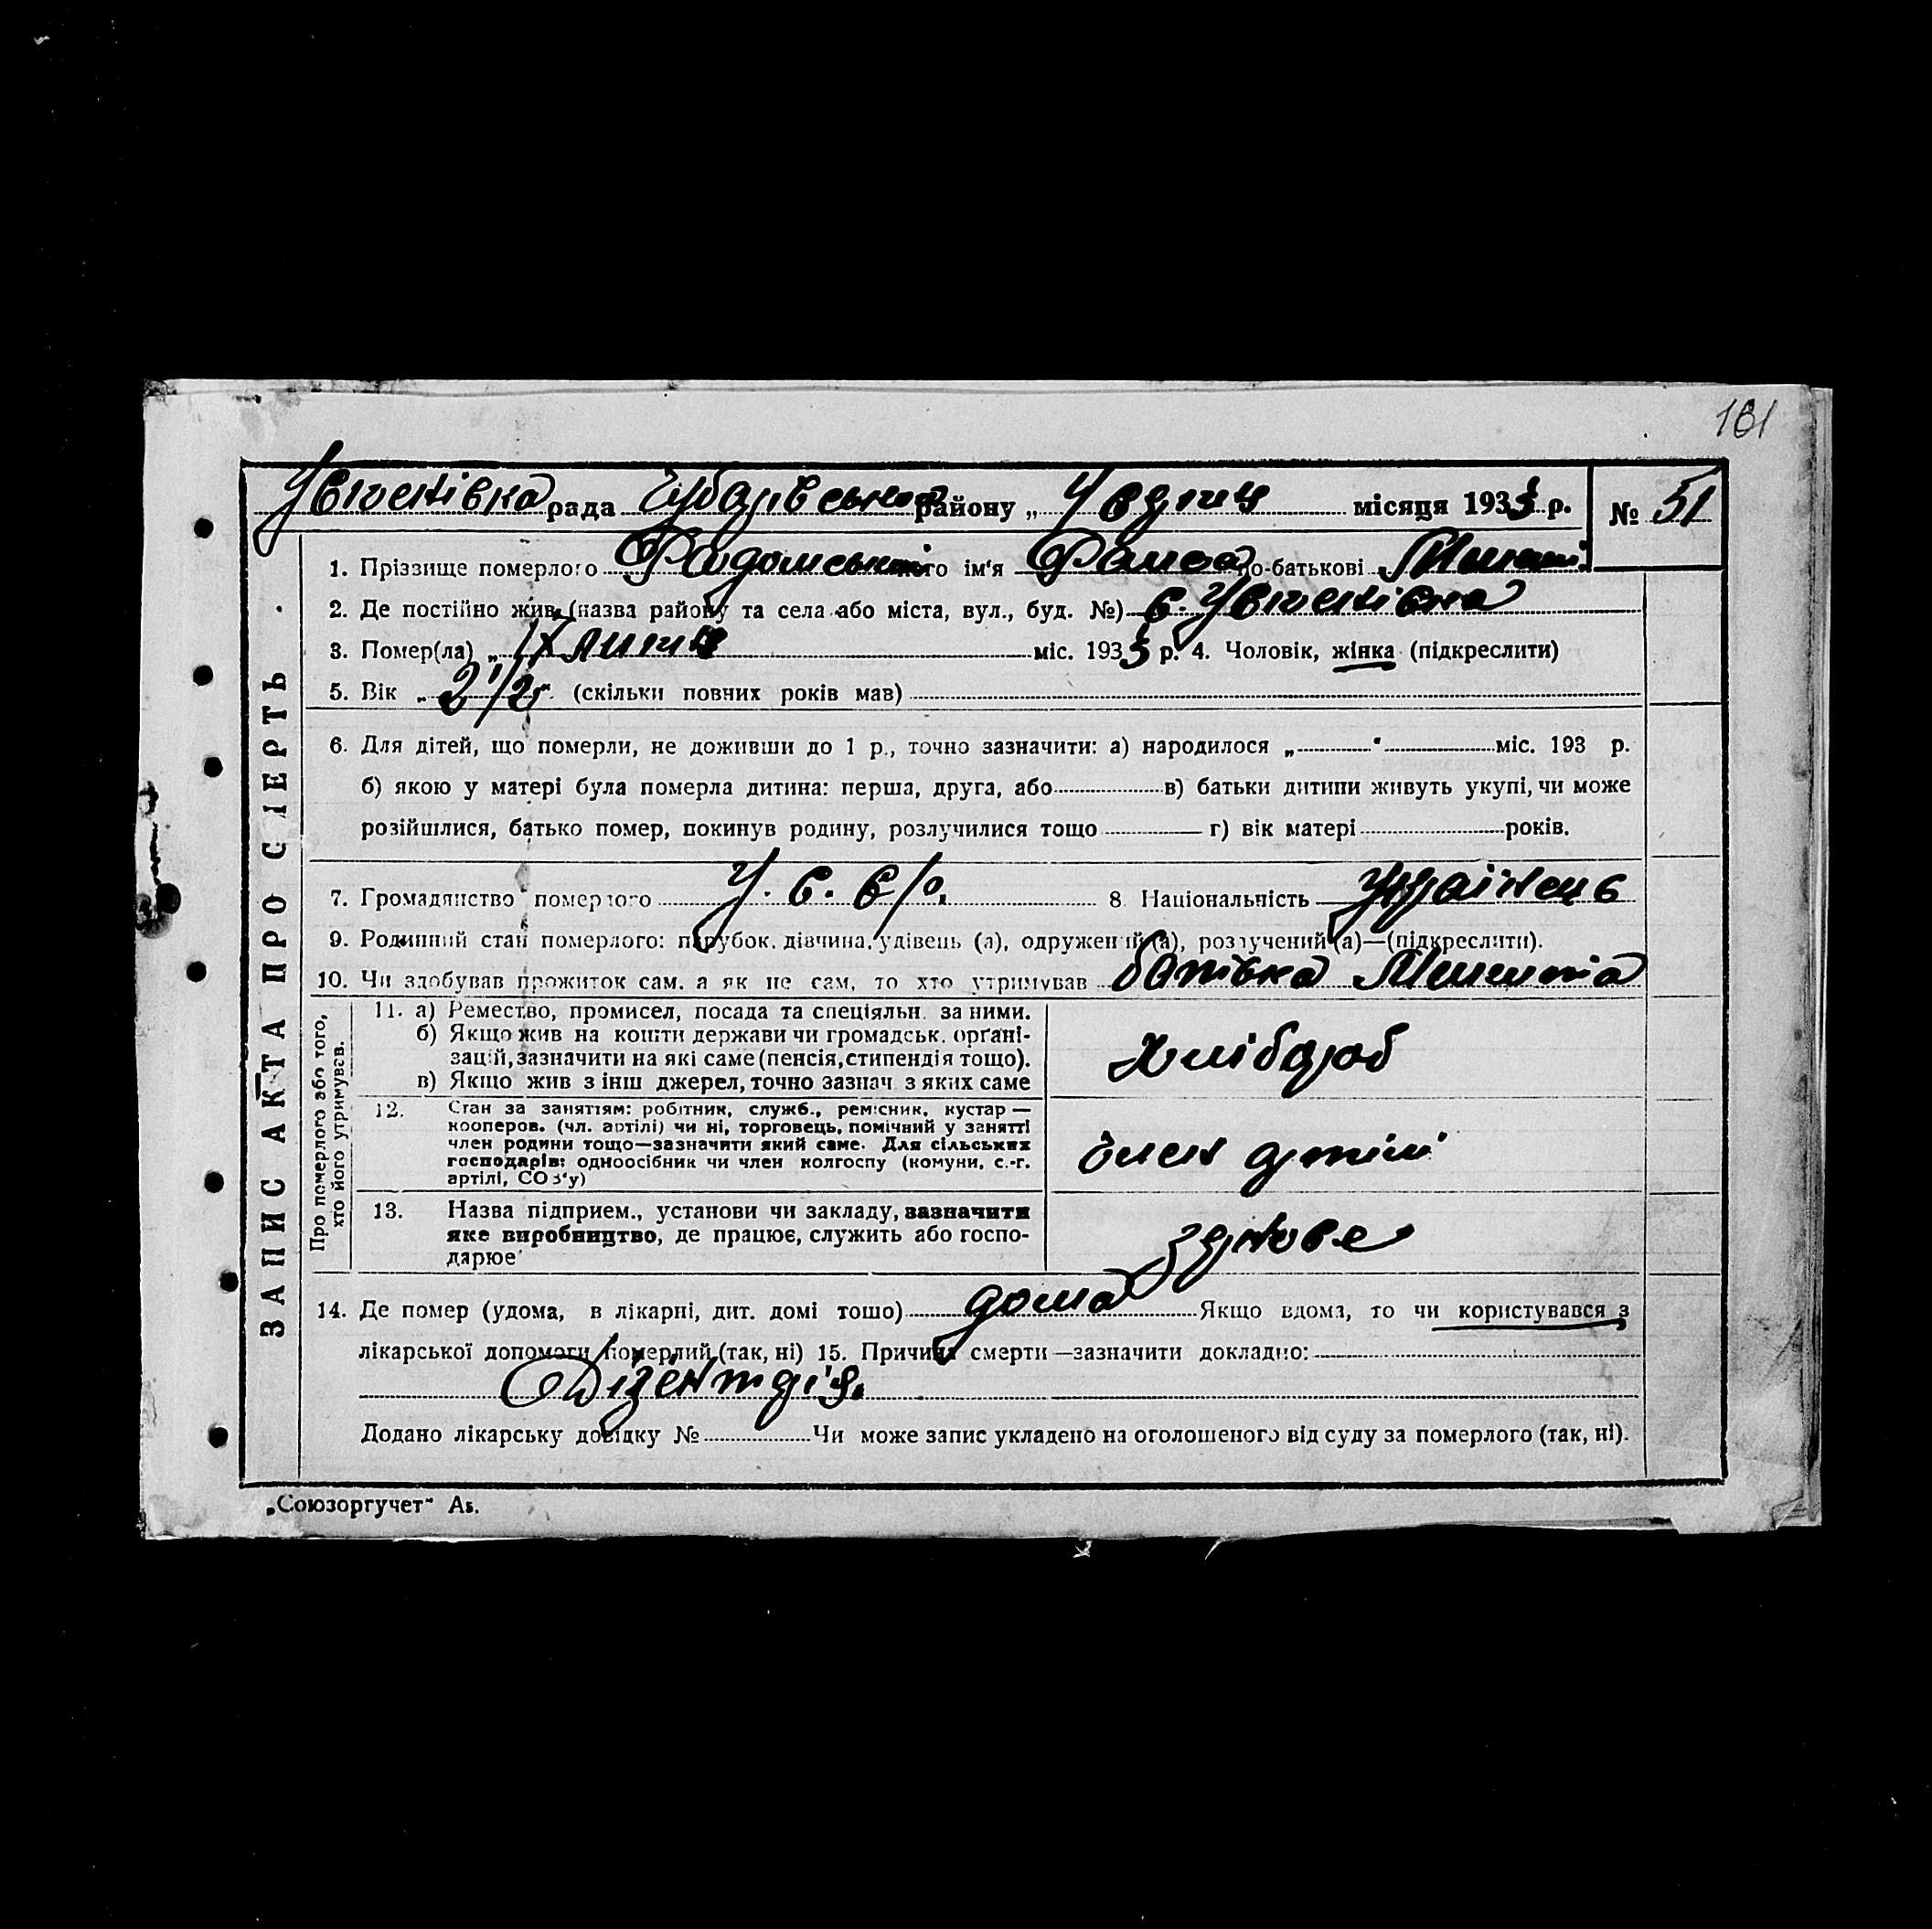 161
Устенівка рада району „ 4 місяця 1933 р. № 51
1. Прізвище померлого його ім'я по-батькові
2. Де постійно жив (назва району та села або міста, вул., буд. №) с. Устенівка
3. Помер(ла) „ 17 липня міс. 1933 р. 4. Чоловік, жінка (підкреслити)
5. Вік „ 2 1/2 " (скільки повних років мав)
6. Для дітей, що померли, не доживши до 1 р., точно зазначити: а) народилося „ " міс. 193 р.
б) якою у матері була померла дитина: перша, друга, або в) батьки дитини живуть укупі, чи може
розійшлися, батько помер, покинув родину, розлучилися тощо г) вік матері років.
7. Громадянство померлого У. С. С. Р. 8. Національність Українець
9. Родинний стан померлого: парубок, дівчина, удівець (а), одружений (а), розлучений (а)—(підкреслити).
10. Чи здобував прожиток сам, а як не сам, то хто утримував
ЗАПИС АКТА ПРО СМЕРТЬ
Про померлого або того,
хто його утримував.
11. а) Ремество, промисел, посада та спеціяльн. за ними.
б) Якщо жив на кошти держави чи громадськ. орґані-
зацій, зазначити на які саме (пенсія, стипендія тощо).
в) Якщо жив з інш джерел, точно зазнач з яких саме
Хлібороб
12. Стан за заняттям: робітник, служб., ремісник, кустар —
кооперов. (чл. артілі) чи ні, торговець, помічний у занятті
член родини тощо—зазначити який саме. Для сільських
господарів: одноосібник чи член колгоспу (комуни, с.-г.
артілі, СОЗ'у)
член артілі
13. Назва підприєм., установи чи закладу, зазначити
яке виробництво, де працює, служить або госпо-
дарює
зернове
14. Де помер (удома, в лікарні, дит. домі тошо) дома Якщо вдома, то чи користувався з
лікарської допомоги померлий (так, ні) 15. Причина смерти—зазначити докладно:
Дізентерія.
Додано лікарську довідку № Чи може запис укладено на оголошеного від суду за померлого (так, ні).
„Союзоргучет“ А₅.